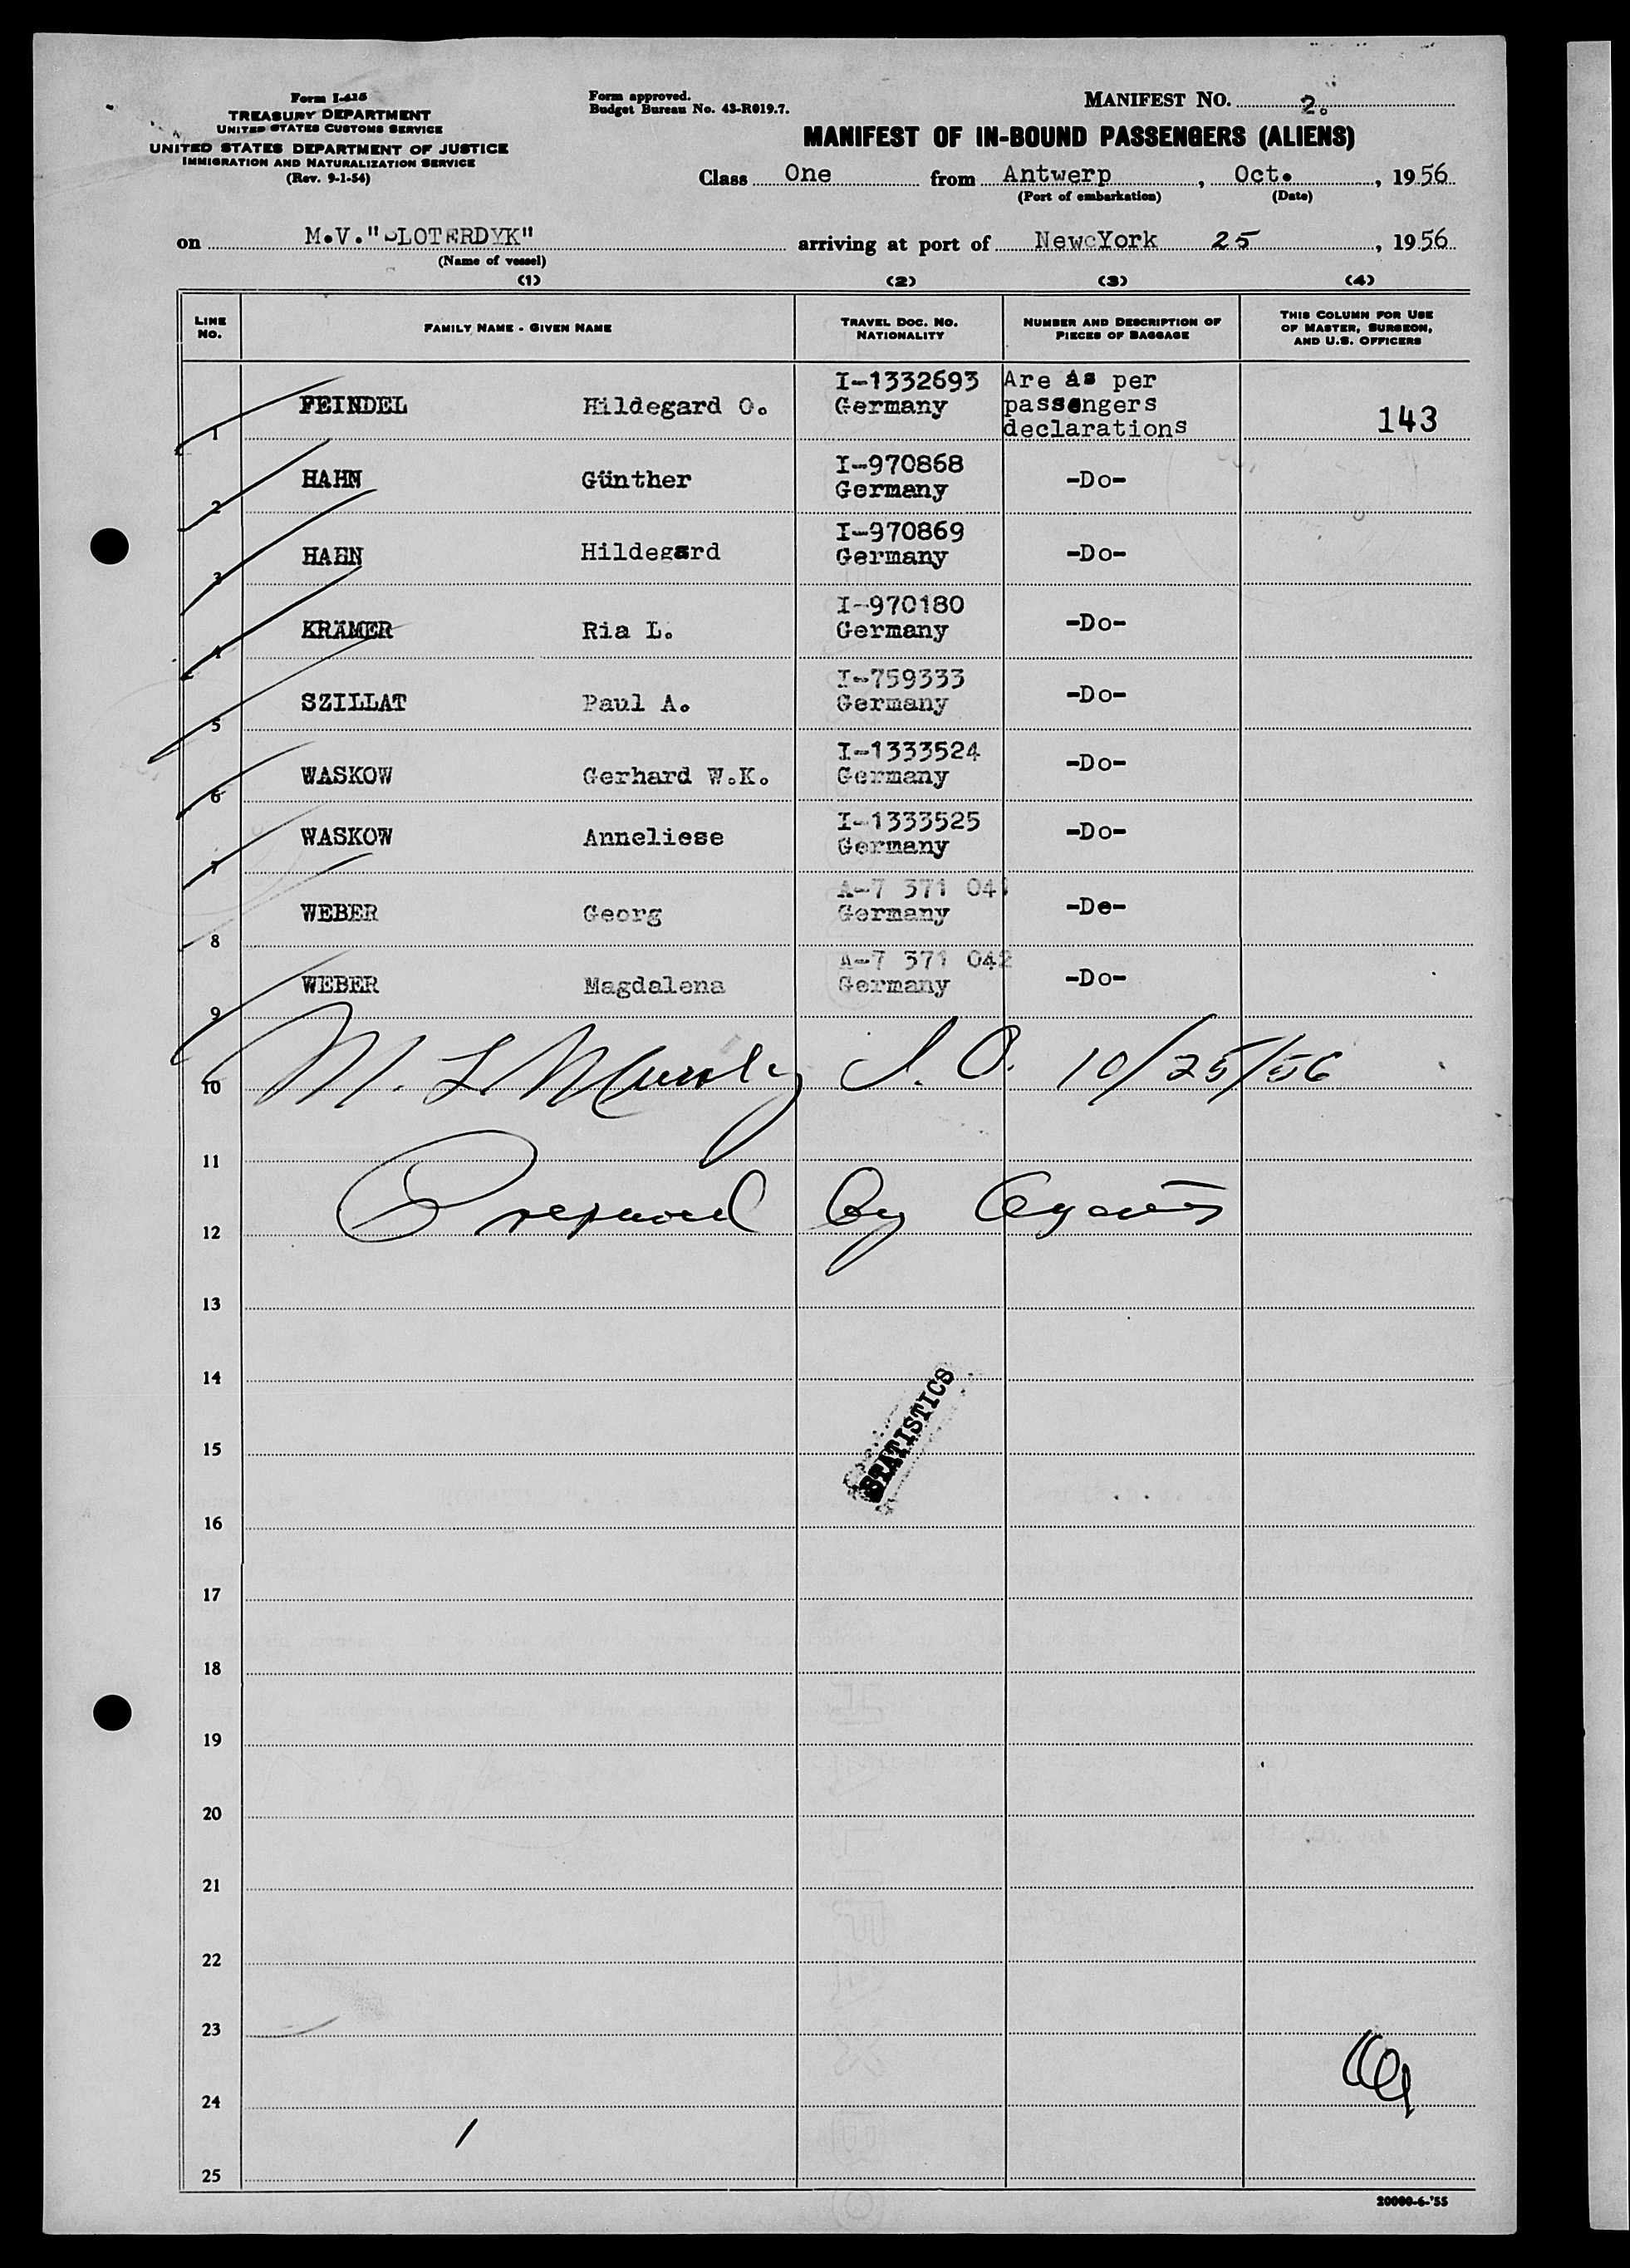 Form I-415
TREASURY DEPARTMENT
UNITED STATES CUSTOMS SERVICE
UNITED STATES DEPARTMENT OF JUSTICE
IMMIGRATION AND NATURALIZATION SERVICE
(Rev. 9-1-54)
Form approved.
Budget Bureau No. 43-R019.7.
MANIFEST NO. 2.
MANIFEST OF IN-BOUND PASSENGERS (ALIENS)
Class One from Antwerp, Oct., 1956
(Port of embarkation) (Date)
on M.V."SLOTERDYK" arriving at port of New York 25, 1956
(Name of vessel)
(1) (2) (3) (4)
LINE NO. FAMILY NAME - GIVEN NAME TRAVEL DOC. NO. NATIONALITY NUMBER AND DESCRIPTION OF PIECES OF BAGGAGE THIS COLUMN FOR USE OF MASTER, SURGEON, AND U.S. OFFICERS
1 FEINDEL Hildegard O. I-1332693 Germany Are as per passengers declarations 143
2 HAHN Günther I-970868 Germany -Do-
3 HAHN Hildegard I-970869 Germany -Do-
4 KRÄMER Ria L. I-970180 Germany -Do-
5 SZILLAT Paul A. I-759333 Germany -Do-
6 WASKOW Gerhard W.K. I-1333524 Germany -Do-
7 WASKOW Anneliese I-1333525 Germany -Do-
8 WEBER Georg A-7 371 041 Germany -De-
9 WEBER Magdalena A-7 371 042 Germany -Do-
10 M. L. Murphy I.O. 10/25/56
11
12 Prepared by Agents
13
14
15
STATISTICS
16
17
18
19
20
21
22
23
24
25
20000-6-'55